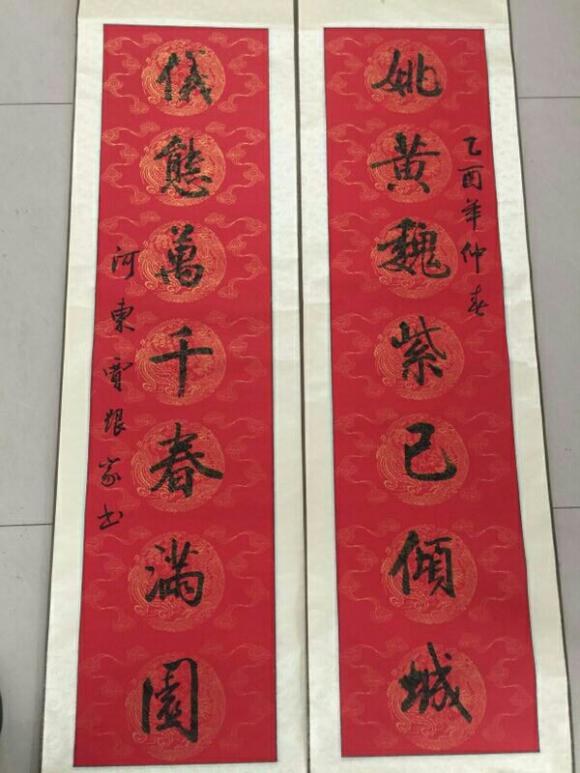 乙酉年仲春
姚黄魏紫已傾城
儀態萬千春滿園
河東 家书